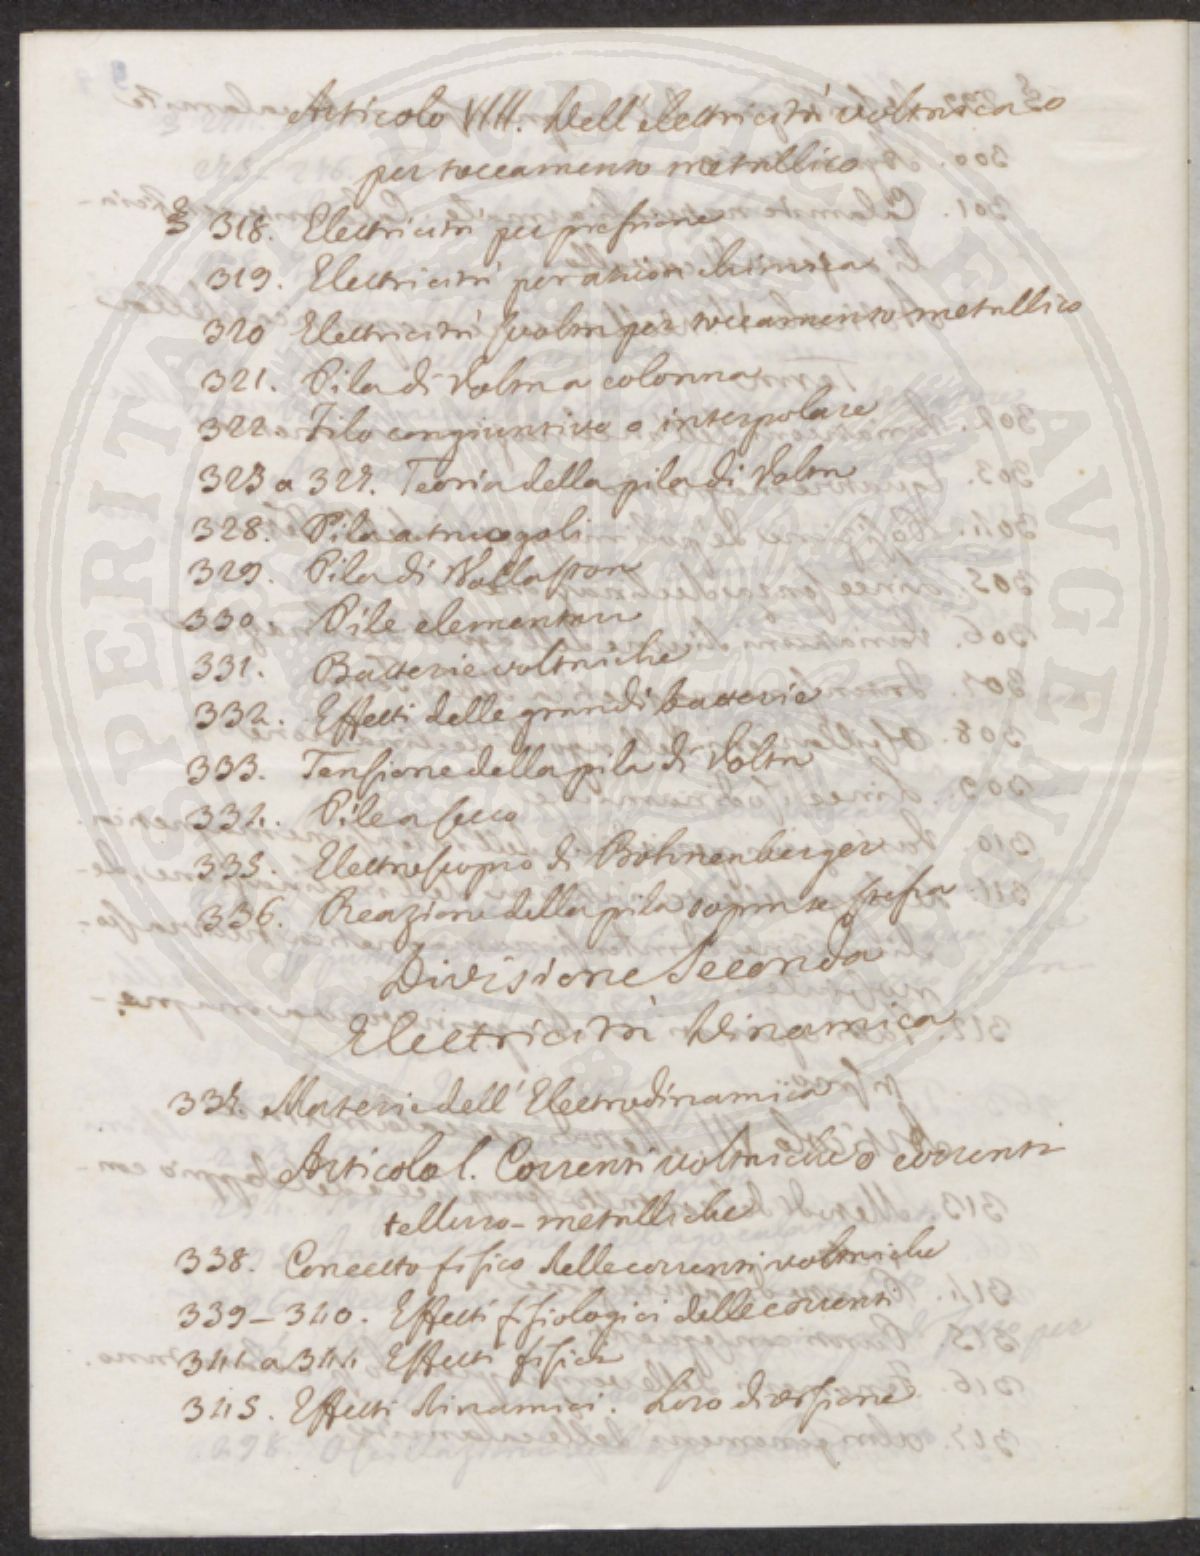 Articolo VIII. Dell'elettricità voltaica o
per toccamento metallico
§ 318. Elettricità per pressione
319. Elettricità per azion chimica
320 Elettricità svolta per toccamento metallico
321. Pila di Volta a colonna
322. Filo congiuntivo o interpolare
323 a 327. Teoria della pila di Volta
328. Pila a truogoli
329. Pila di Wollaston
330. Pile elementari
331. Batterie voltaiche
332. Effetti delle grandi batterie
333. Tensione della pila di Volta
334. Pile a secco
335. Elettroscopio di Bohnenberger
336. Reazione della pila sopra se stessa
Divisione Seconda
Elettricità Dinamica
337. Materie dell'Elettrodinamica
Articolo I. Correnti voltaiche o correnti
telluro-metalliche
338. Concetto fisico delle correnti voltaiche
339–340. Effetti fisiologici delle correnti
341 a 344 Effetti fisici
345. Effetti dinamici. Loro divisione
PUBLICAE
PROSPERITATI
AVGENDAE